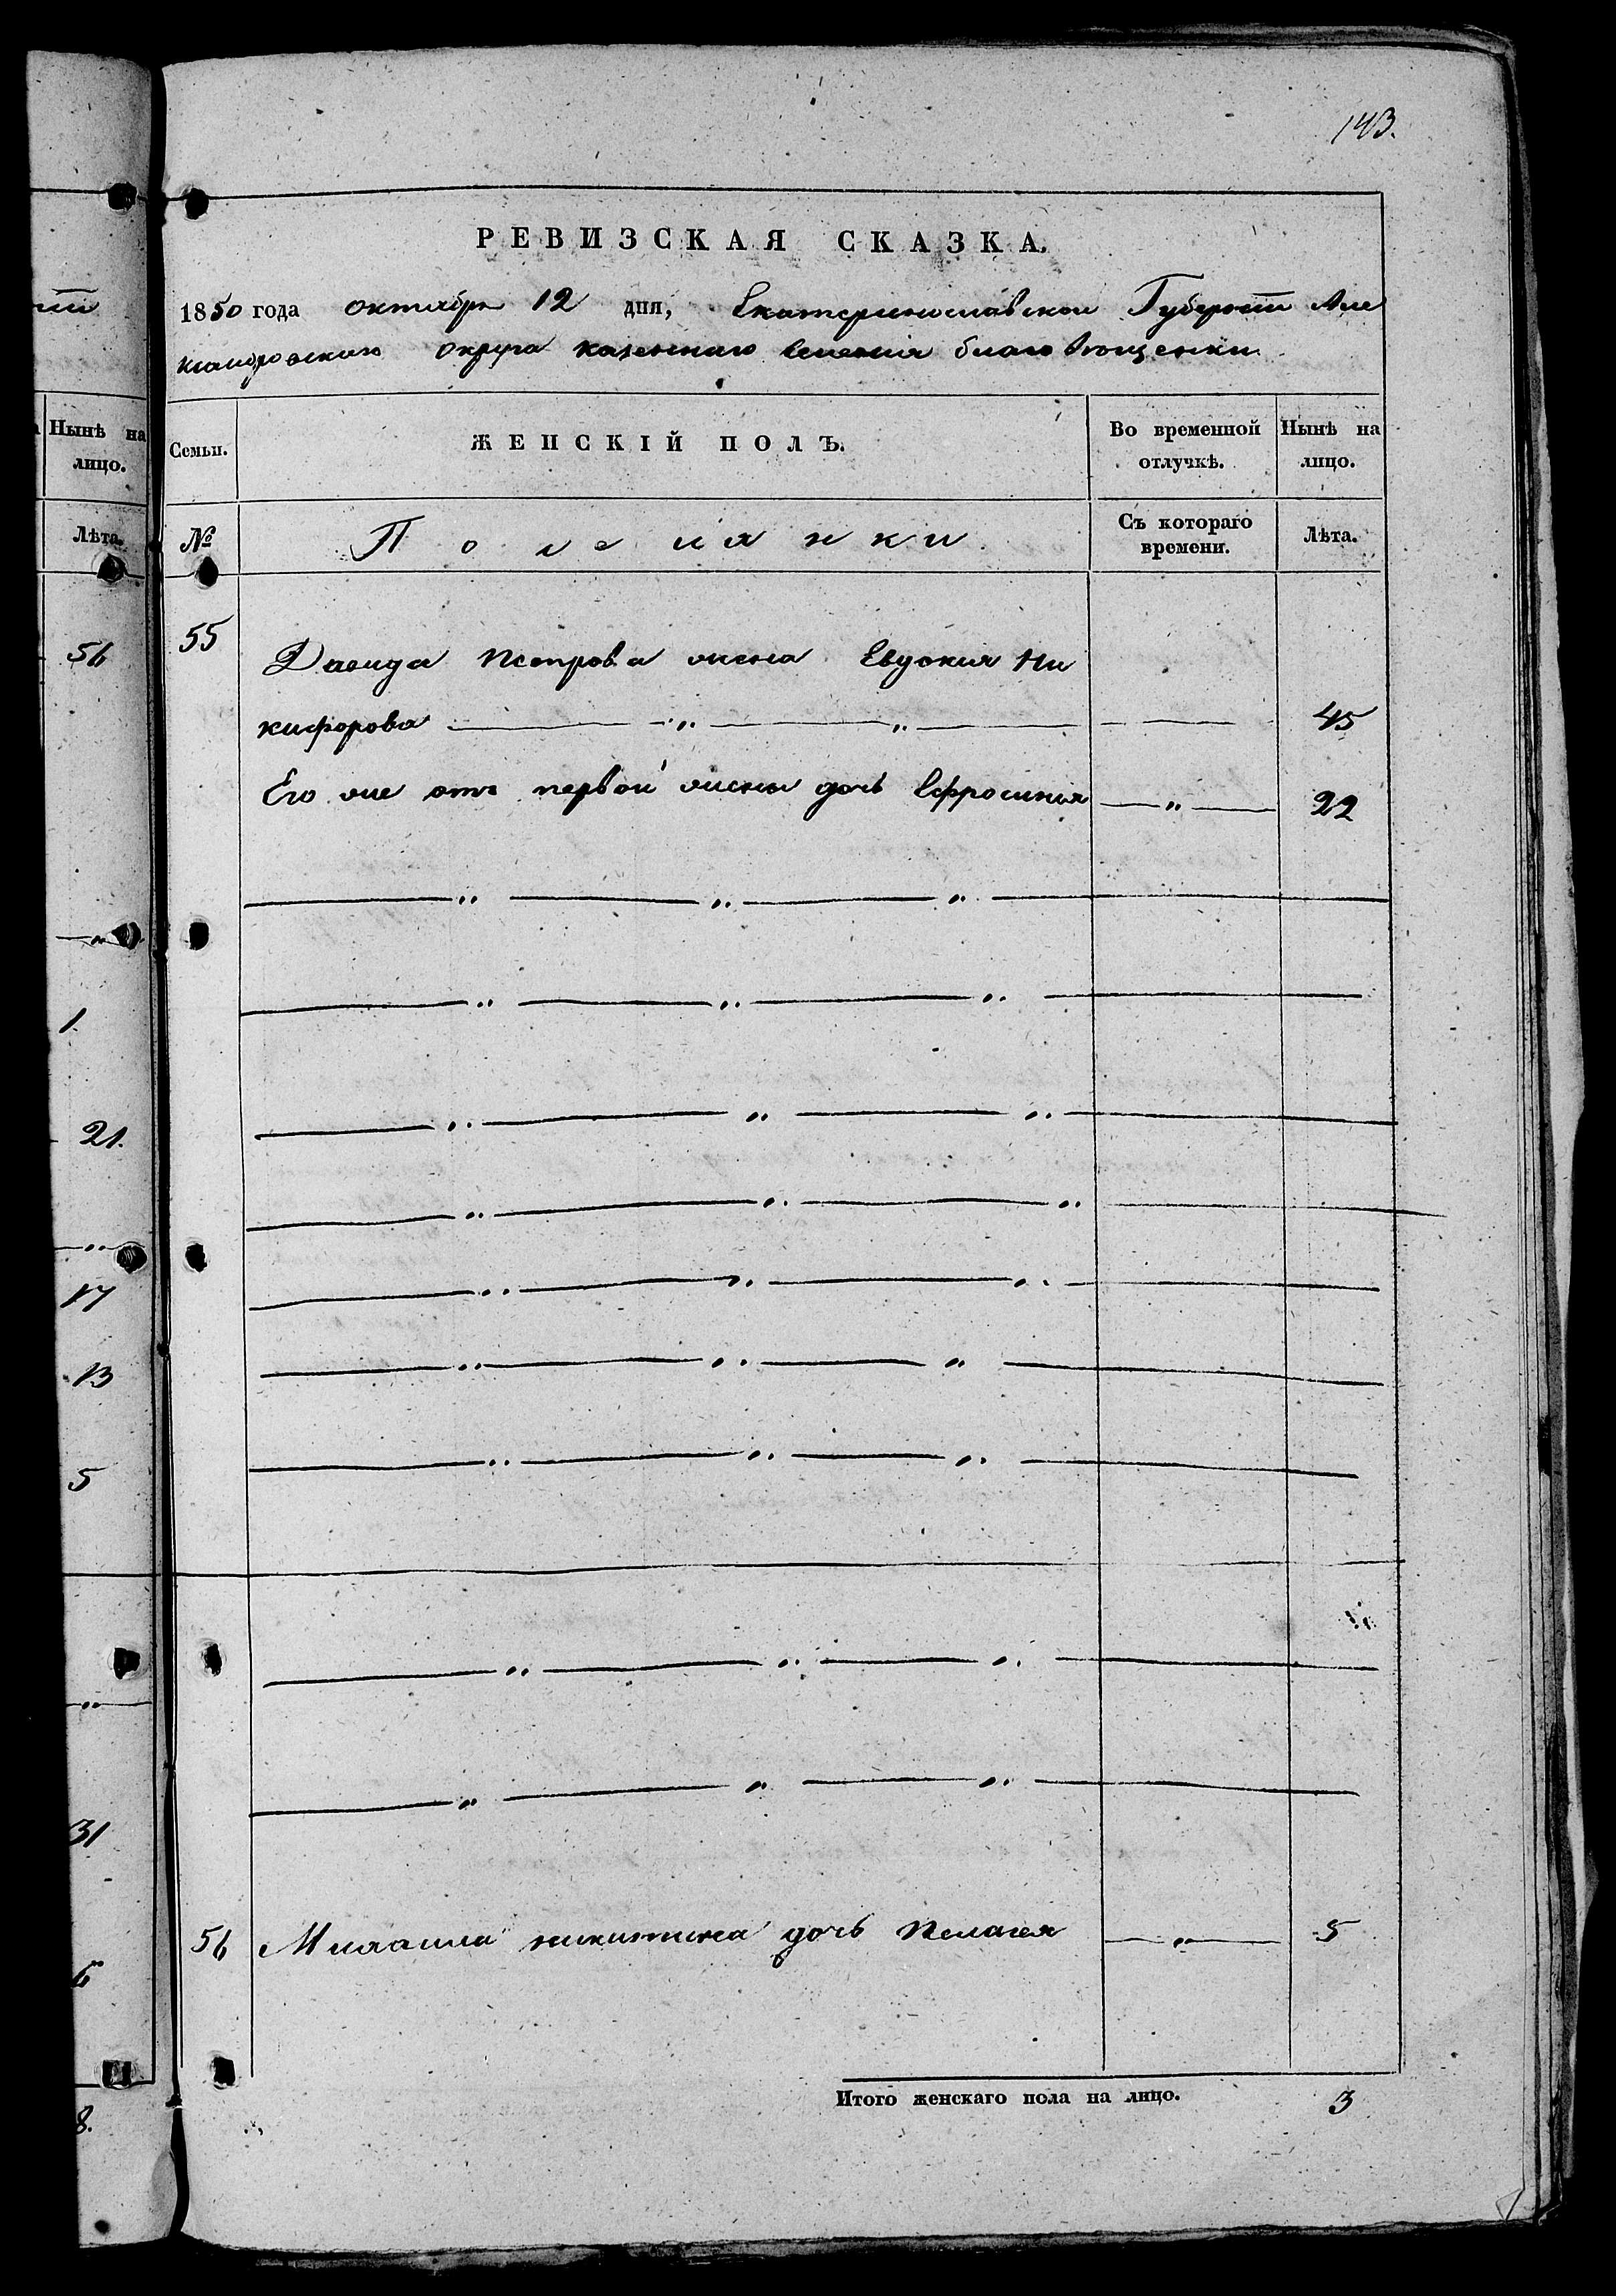 143.
РЕВИЗСКАЯ СКАЗКА.
1850 года октября 12 дня, Екатеринославской Губернiи Але
ксандровскаго округа казеннаго селенiя благовѣщенки
Нынѣ на лицо.
Лѣта.
56
1.
21.
17
13
5
31
6
8.
Семьи.
ЖЕНСКIЙ ПОЛЪ.
Во временной отлучкѣ.
Нынѣ на лицо.
№
Поселянки
Съ котораго времени.
Лѣта.
55
Давида Петрова жена Евдокия Ни
кифорова 45
Его же отъ первой жены дочь Ефросиния 22
56 Михаила никитина дочь Пелагея 5
Итого женскаго пола на лицо. 3